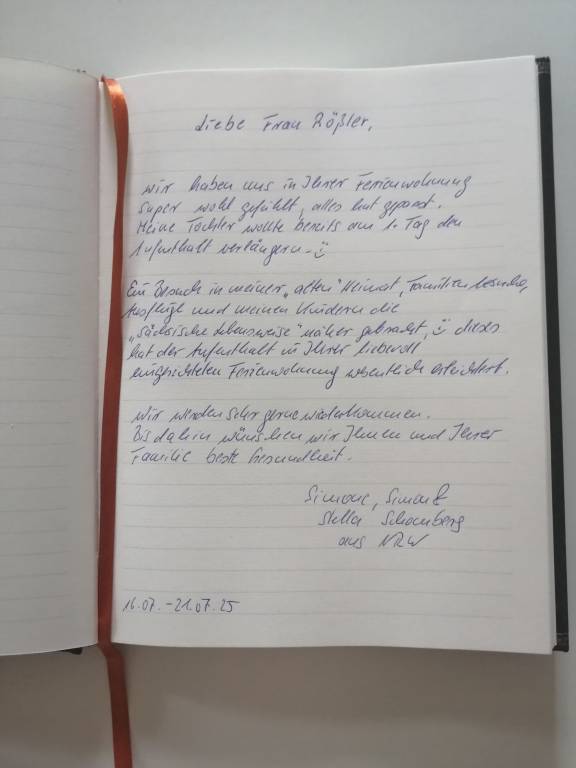 Liebe Frau Rößler,
wir haben uns in Ihrer Ferienwohnung
super wohl gefühlt, alles hat gepasst.
Meine Tochter wollte bereits am 1. Tag den
Aufenthalt verlängern. ☺
Ein Besuch in meiner „alten" Heimat, Familienbesuche,
Ausflüge und meinen Kindern die
„sächsische Lebensweise" näher gebracht, ☺ dieses
hat der Aufenthalt in Ihrer liebevoll
eingerichteten Ferienwohnung wesentlich erleichtert.
Wir werden sehr gerne wiederkommen.
Bis dahin wünschen wir Ihnen und Ihrer
Familie beste Gesundheit.
Simone, Simon &
Stella
aus NRW
16.07. - 21.07.25